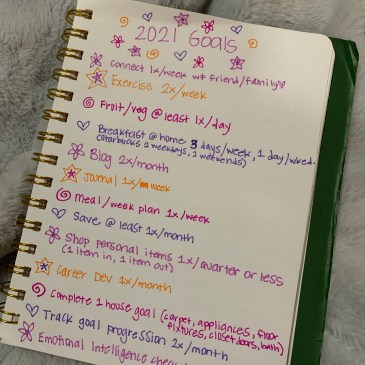 2021 Goals
Connect 1x/week w/ friend/family
Exercise 2x/week
Fruit/veg @ least 1x/day
Breakfast @ home 3 days/week, 1 day/wked.
(Starbucks 2 weekdays, 2 weekends)
Blog 2x/month
Journal 1x/ week
Meal/week plan 1x/week
Save @ least 1x/month
Shop personal items 1x/quarter or less
(1 item in, 1 item out)
Career Dev 1x/month
Complete 1 house goal (carpet, appliances, floor
fixtures, closet doors, bath)
Track goal progression 2x/month
Emotional Intelligence check